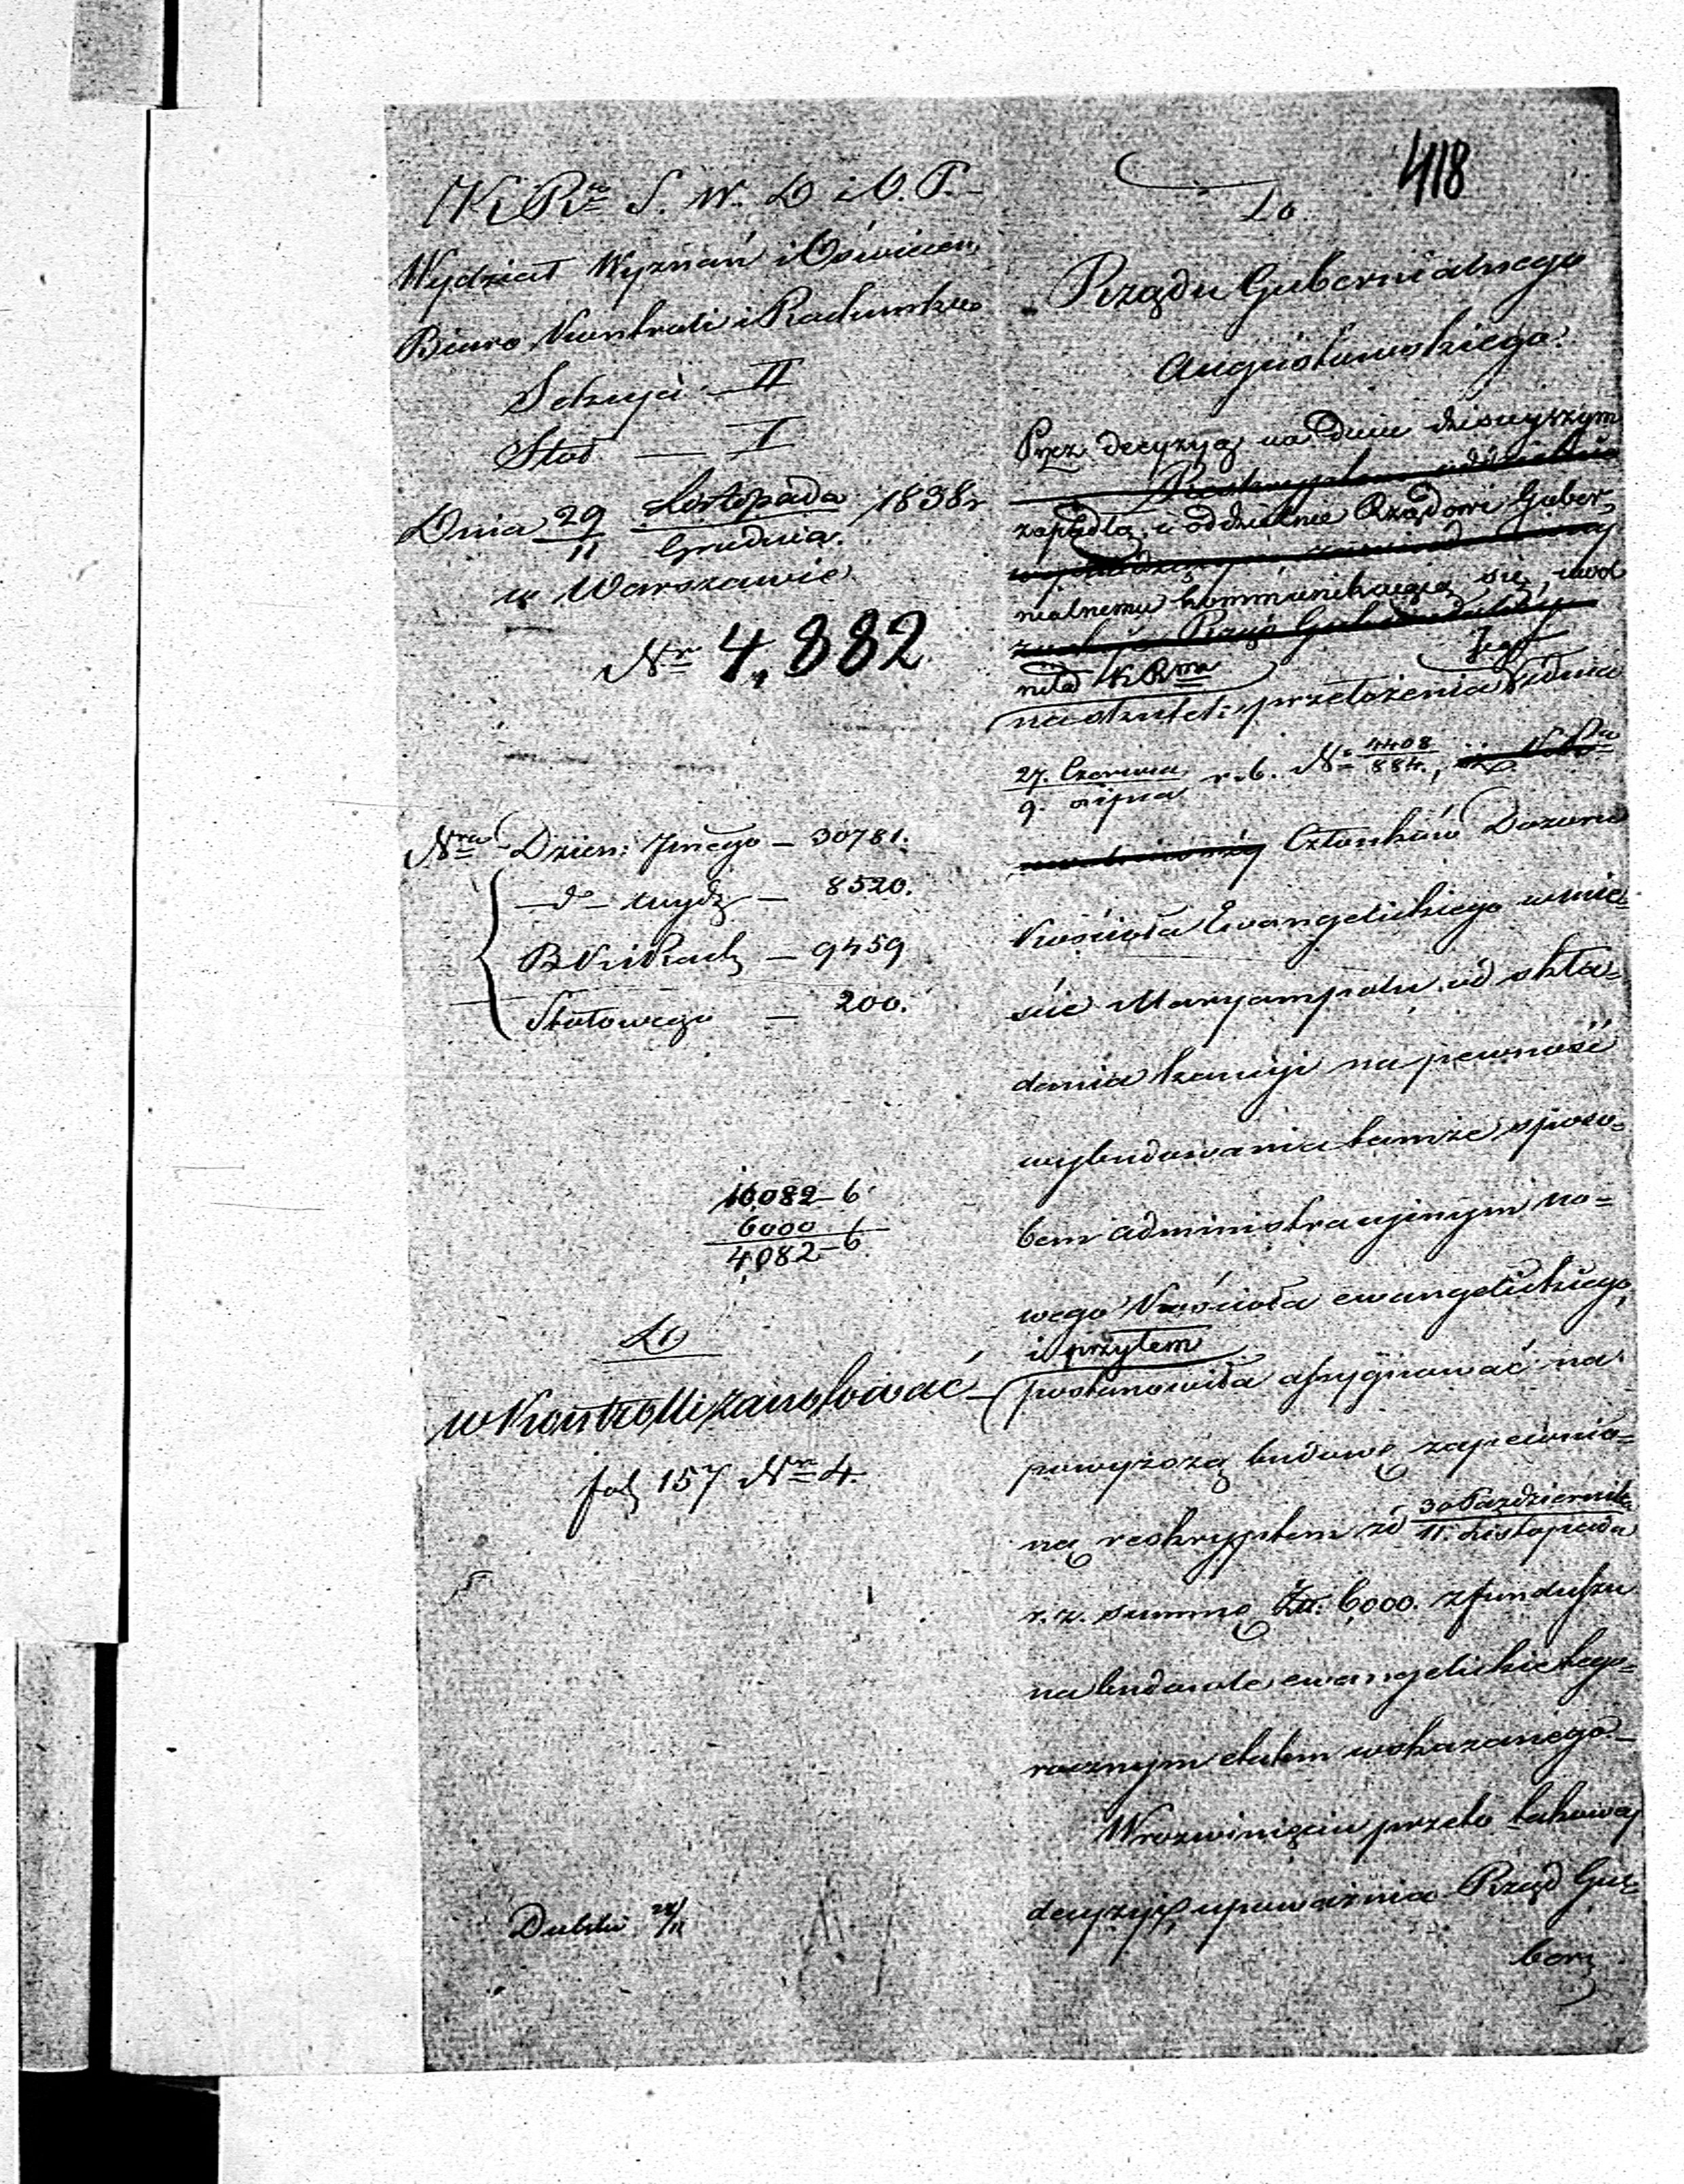 418
K. R. S. W. D i O. P.
Wydział Wyznań i Oświecen.
Biuro Kontroli i Rachunków
Sekcyja II
Stół I
Dnia 29/11 Listopada/Grudnia 1838 r
w Warszawie
Nr 4,882
Nra Dzien: Jnego – 30781.
– do – wydz – 8520.
B Kri Rach – 9459
Stołowego – 200.
10,082 – 6
6000
4,082 – 6
w Kontrolli zanotować
fol 157 Nr 4
22/11
Do
Rządu Gubernialnego
Augustowskiego.
Przez decyzyą na dniu dzisiejszym
zapadłą i oddzielnie Rządowi Guber-
nialnemu kommunikującą się, uwol
niła K R
na skutek przełożenia Jego z dnia
27. Czerwca/9. Lipca r. b. N 4408/884.,
Członków Dozoru
Kościoła Ewangelickiego w mie-
ście Maryampolu od skła-
dania kaucyi na pewność
wybudowania tamże sposo-
bem administracyjnym no-
wego Kościoła ewangelickiego,
i przytem
postanowiła assygnować na
powyższą budowę zapewnio-
ną reskryptem zd 30 Października/11. Listopada
r. z. summę Złt. 6,000. z funduszu
na budowle ewangelickie tego-
rocznym etatem wskazanego. –
W rozwinięciu przeto takowej
decyzyi, upoważnia Rząd Gu-
ber